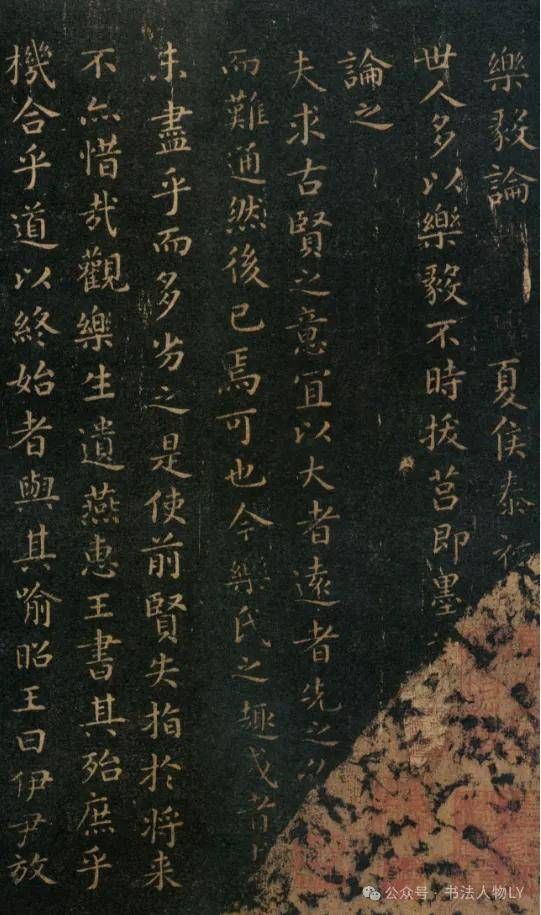 樂毅論 夏侯泰初
世人多以樂毅不時拔莒即墨
論之
夫求古賢之意冝以大者遠者先之
而難通然後已焉可也今樂氏之趣或者
未盡乎而多劣之是使前賢失指於将来
不亦惜哉觀樂生遺燕惠王書其殆庶乎
機合乎道以終始者與其喻昭王曰伊尹放
公众号·书法人物LY